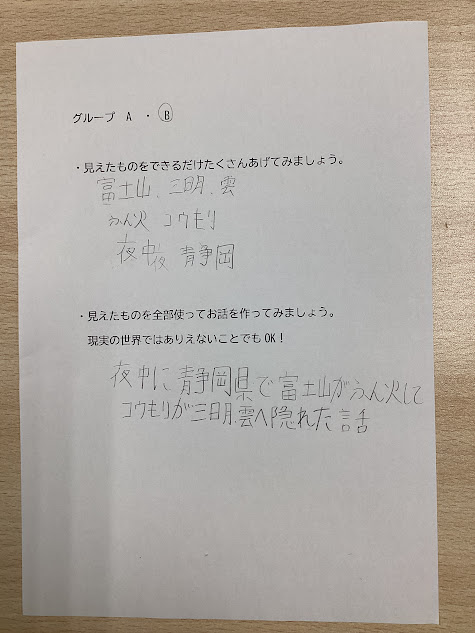 グループ A ・ B
・見えたものをできるだけたくさんあげてみましょう。
富士山、三日月、雲
ふん火 コウモリ
夜中夜 青静岡
・見えたものを全部使ってお話を作ってみましょう。
現実の世界ではありえないことでもOK!
夜中に青静岡県で富士山がふん火して
コウモリが三日月、雲へ隠れた話